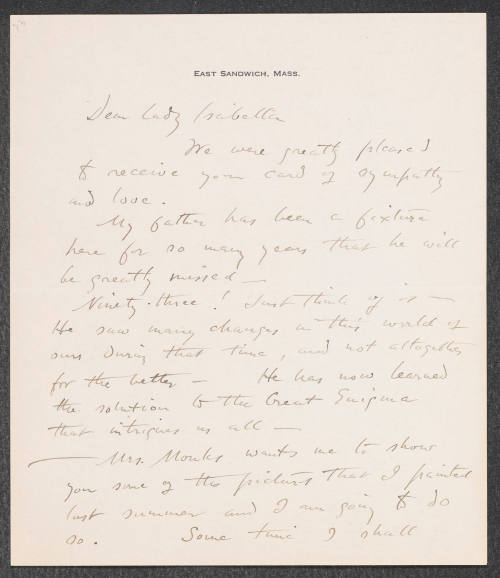 EAST SANDWICH, MASS.
Dear Lady Isabella
We were greatly pleased
to receive your card of sympathy
and love.
My father has been a fixture
here for so many years that he will
be greatly missed —
Ninety-three! Just think of it —
He saw many changes in this world of
ours during that time, and not altogether
for the better — He has now learned
the solution to the Great Enigma
that intrigues us all —
— Mrs. Monks wants me to show
you some of the pictures that I painted
last summer and I am going to do
so. Some time I shall